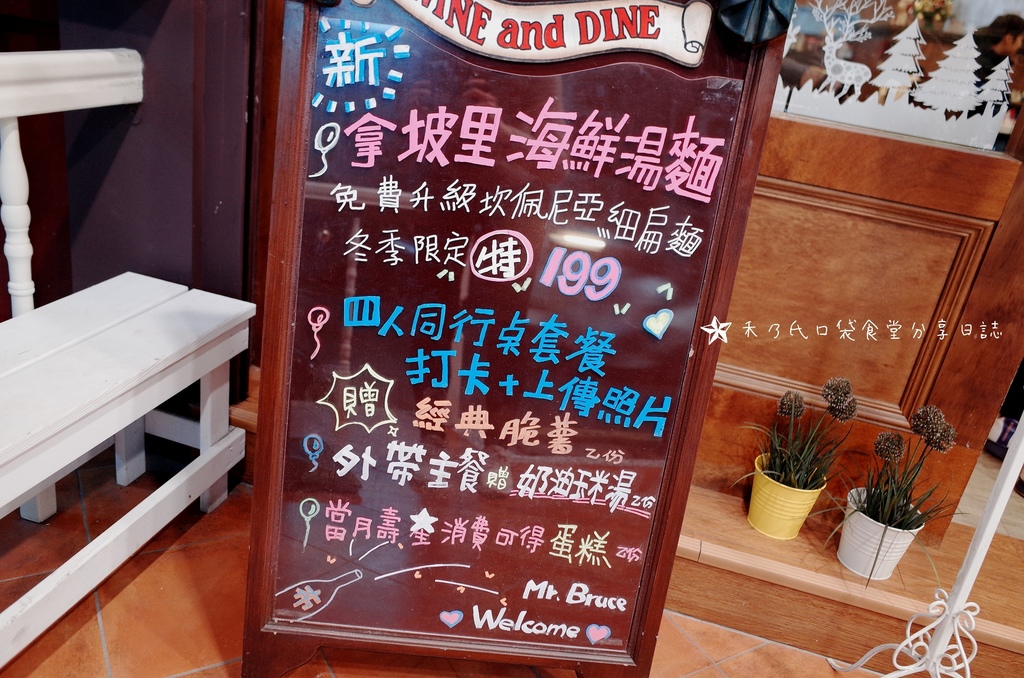 WINE and DINE
新
拿坡里海鮮湯麵
免費升級坎佩尼亞細扁麵
冬季限定 特 199
四人同行桌套餐
打卡+上傳照片
贈 經典脆薯乙份
外帶主餐贈奶油玉米湯乙份
當月壽星消費可得蛋糕乙份
Mr. Bruce
Welcome
禾乃氏口袋食堂分享日誌